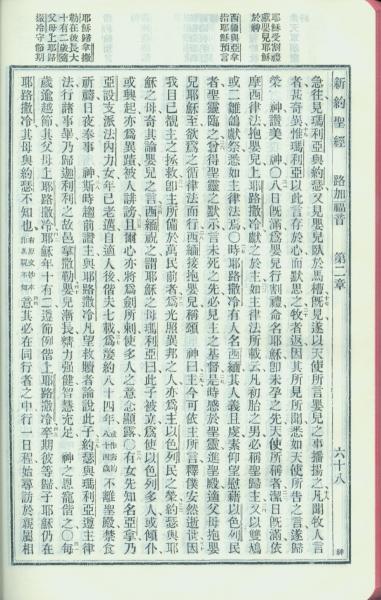 新約聖經 路加福音 第二章 六十八 神
耶穌受割禮
獻嬰兒耶穌
於神
西緬與亞拿
指耶穌預言
耶穌諸拿撒
勒在彼長大
十有二歲隨
父母上耶路
撒冷守節期
急往見瑪利亞與約瑟又見嬰兒臥於馬槽既見遂以天使所言嬰兒之事播揚之凡聞牧人言
者莫奇異惟瑪利亞以此言存於心而默思之牧者返因其所見所聞悉如天使所告之言遂歸
榮 神讚美 神〇八日既滿為嬰兒行割禮命名耶穌卽未孕之先天使所稱者潔日既滿依
摩西律法抱嬰兒上耶路撒冷獻之於主如主律法所載云凡初胎之男必稱聖歸主又以雙鳩
或二雛鴿獻祭悉如主律法焉〇時耶路撒冷有人名西緬其人義且虔素仰望慰藉以色列民
者聖靈臨之曾得聖靈之默示言未死之先必見主之基督是時感於聖靈進聖殿適父母抱嬰
兒耶穌至欲為之循律法而行西緬接抱嬰兒稱頌 神曰主今可依主所言釋僕安然逝世因
我目已覩主之拯救卽主所備於萬民前者為光照異邦之人亦為主以色列民之榮約瑟與耶
穌之母奇其論嬰兒之言西緬祝之謂耶穌之母瑪利亞曰此子被立為使以色列多人或傾仆
或興起亦為異蹟被人誹謗且爾心亦將為劍所刺使多人之意念顯露〇有女先知名亞拿乃
亞設支派法內力女年已老邁自適人後偕夫七載為嫠約八十四年 不離聖殿禁食
祈禱日夜奉事 神斯時趨前讚主與耶路撒冷凡望救贖者論說此子約瑟與瑪利亞遵主律
法行諸事畢乃歸迦利利之故邑拿撒勒嬰兒漸長精力強健智慧充足 神之恩寵偕之〇每
歲逾越節其父母上耶路撒冷耶穌年十有二遵節例偕上耶路撒冷卒期彼等歸子耶穌仍在
耶路撒冷其母與約瑟不知也 有原文抄本作其父母不知 意其必在同行者之中行一日程始尋訪於親屬相